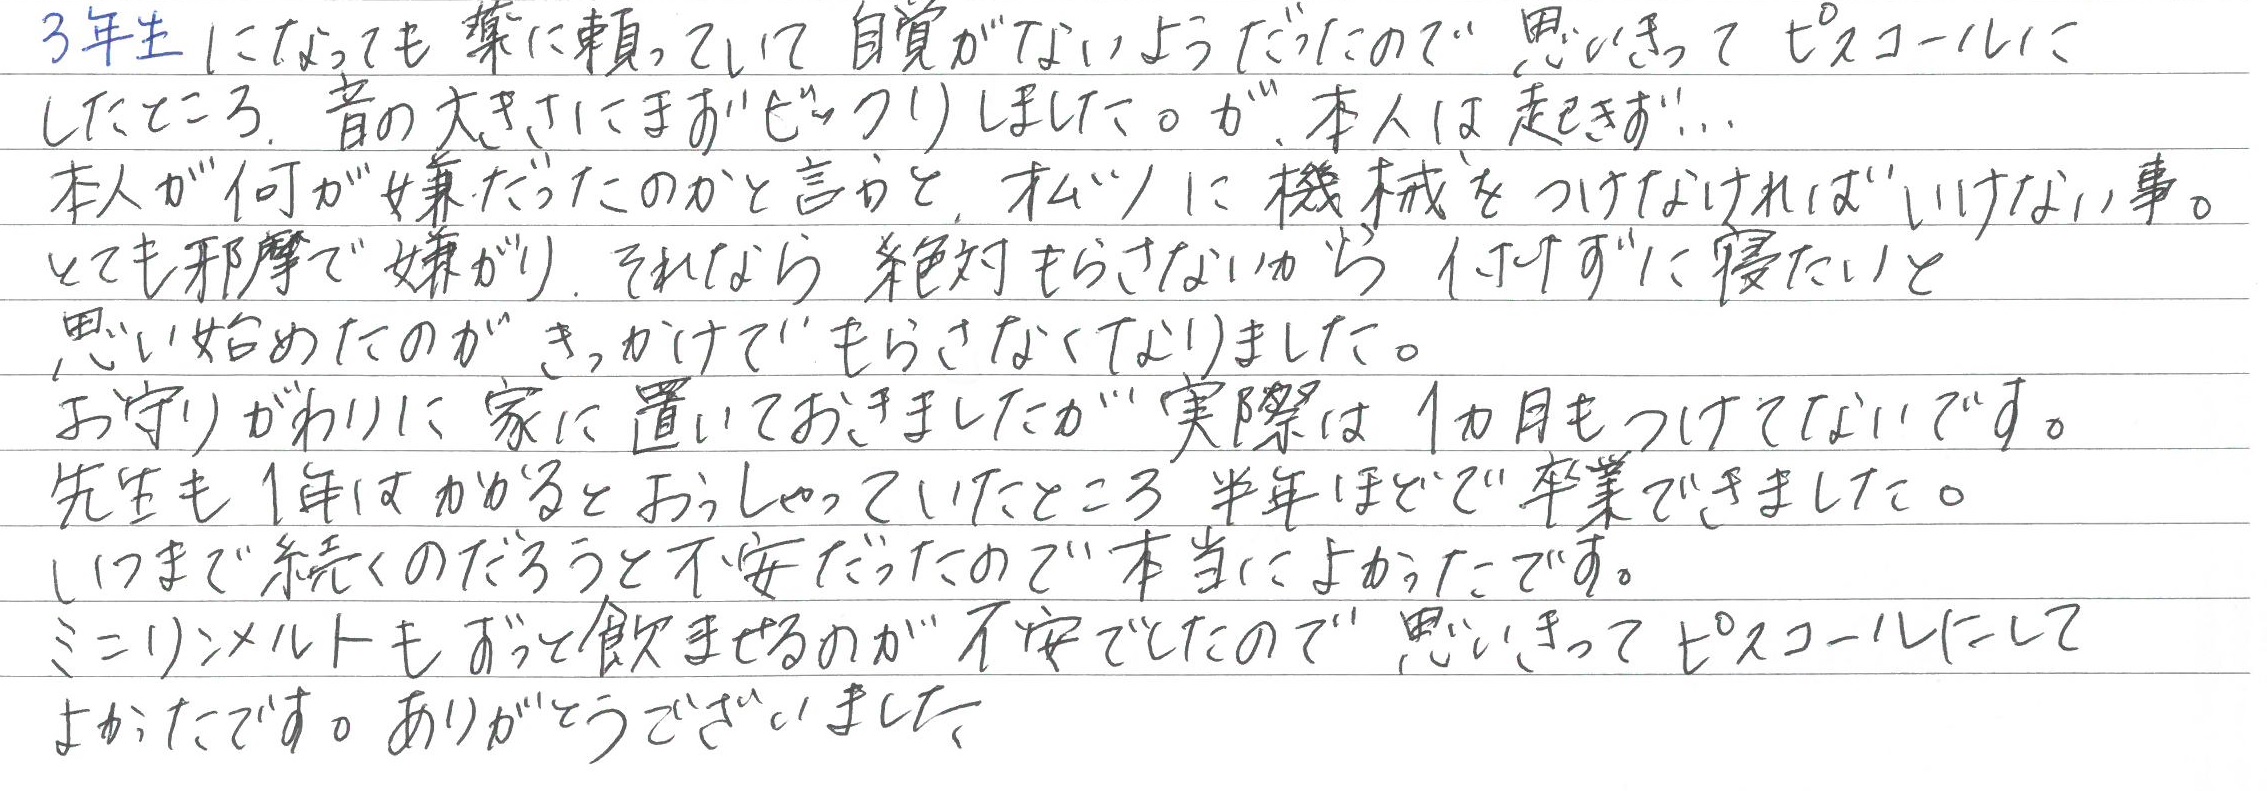 3年生になっても薬に頼っていて自覚がないようだったので思いきってピスコールに
したところ、音の大きさにまずビックリしました。が、本人は起きず…
本人が何が嫌だったのかと言うと、オムツに機械をつけなければいけない事。
とても邪摩で嫌がり、それなら絶対もらさないから付けずに寝たいと
思い始めたのがきっかけでもらさなくなりました。
お守りがわりに家に置いておきましたが実際は1カ月もつけてないです。
先生も1年はかかるとおっしゃっていたところ半年ほどで卒業できました。
いつまで続くのだろうと不安だったので本当によかったです。
ミニリンメルトもずっと飲ませるのが不安でしたので思いきってピスコールにして
よかったです。ありがとうございました